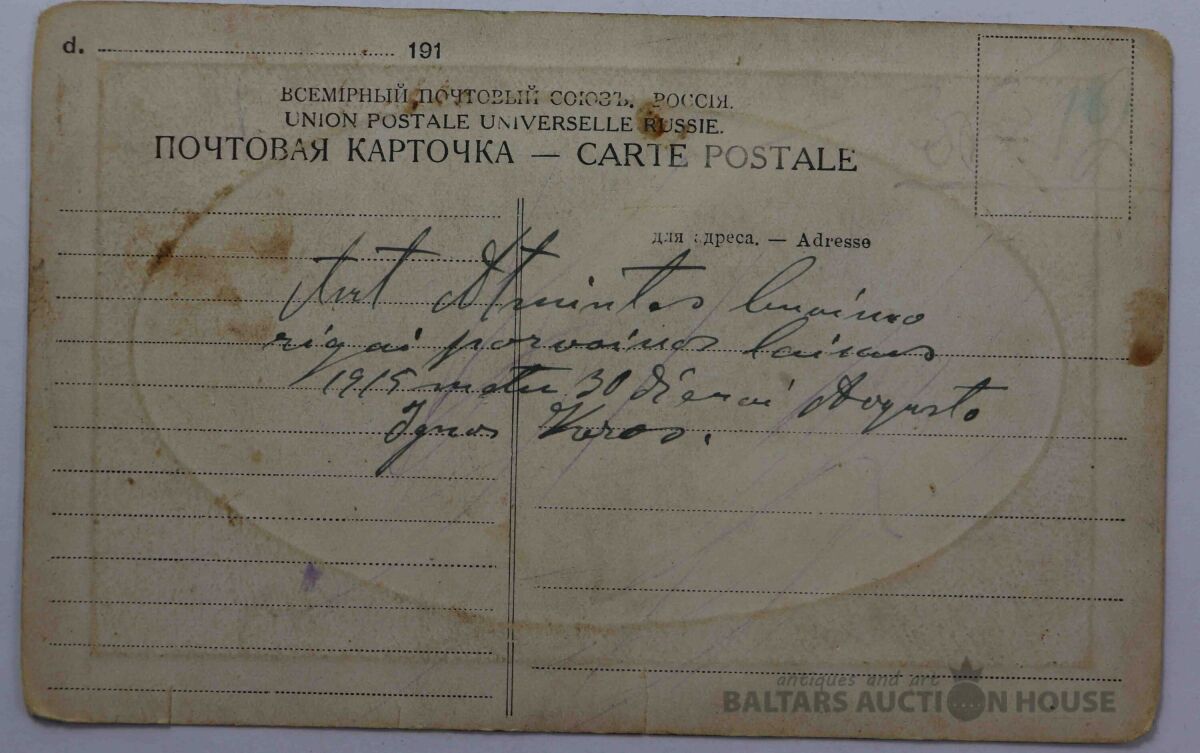 d. 191
ВСЕМІРНЫЙ ПОЧТОВЫЙ СОЮЗЪ. РОССІЯ.
UNION POSTALE UNIVERSELLE RUSSIE.
ПОЧТОВАЯ КАРТОЧКА — CARTE POSTALE
для адреса. — Adresse
Ant Atmintes
rigai laikus
1915 metu 30 dienai Augusto
Ignas
antiques and art
BALTARS AUCTION HOUSE